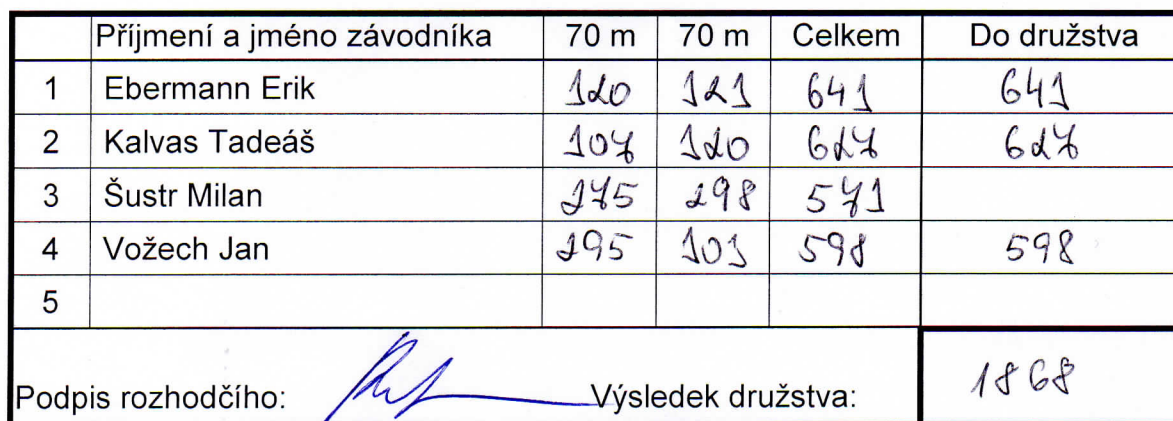 Příjmení a jméno závodníka 70 m 70 m Celkem Do družstva
1 Ebermann Erik 320 323 643 643
2 Kalvas Tadeáš 307 320 627 627
3 Šustr Milan 275 298 573
4 Vožech Jan 295 303 598 598
5
Podpis rozhodčího: Výsledek družstva: 1868